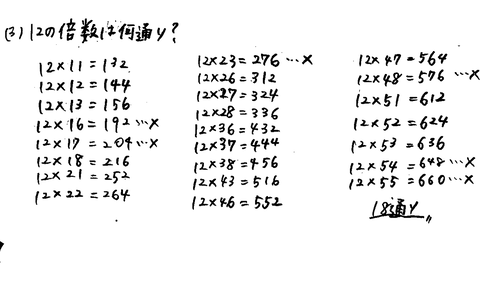 (3) 12の倍数は何通り?
12×11=132
12×12=144
12×13=156
12×16=192…×
12×17=204…×
12×18=216
12×21=252
12×22=264
12×23=276…×
12×26=312
12×27=324
12×28=336
12×36=432
12×37=444
12×38=456
12×43=516
12×46=552
12×47=564
12×48=576…×
12×51=612
12×52=624
12×53=636
12×54=648…×
12×55=660…×
18通り〃